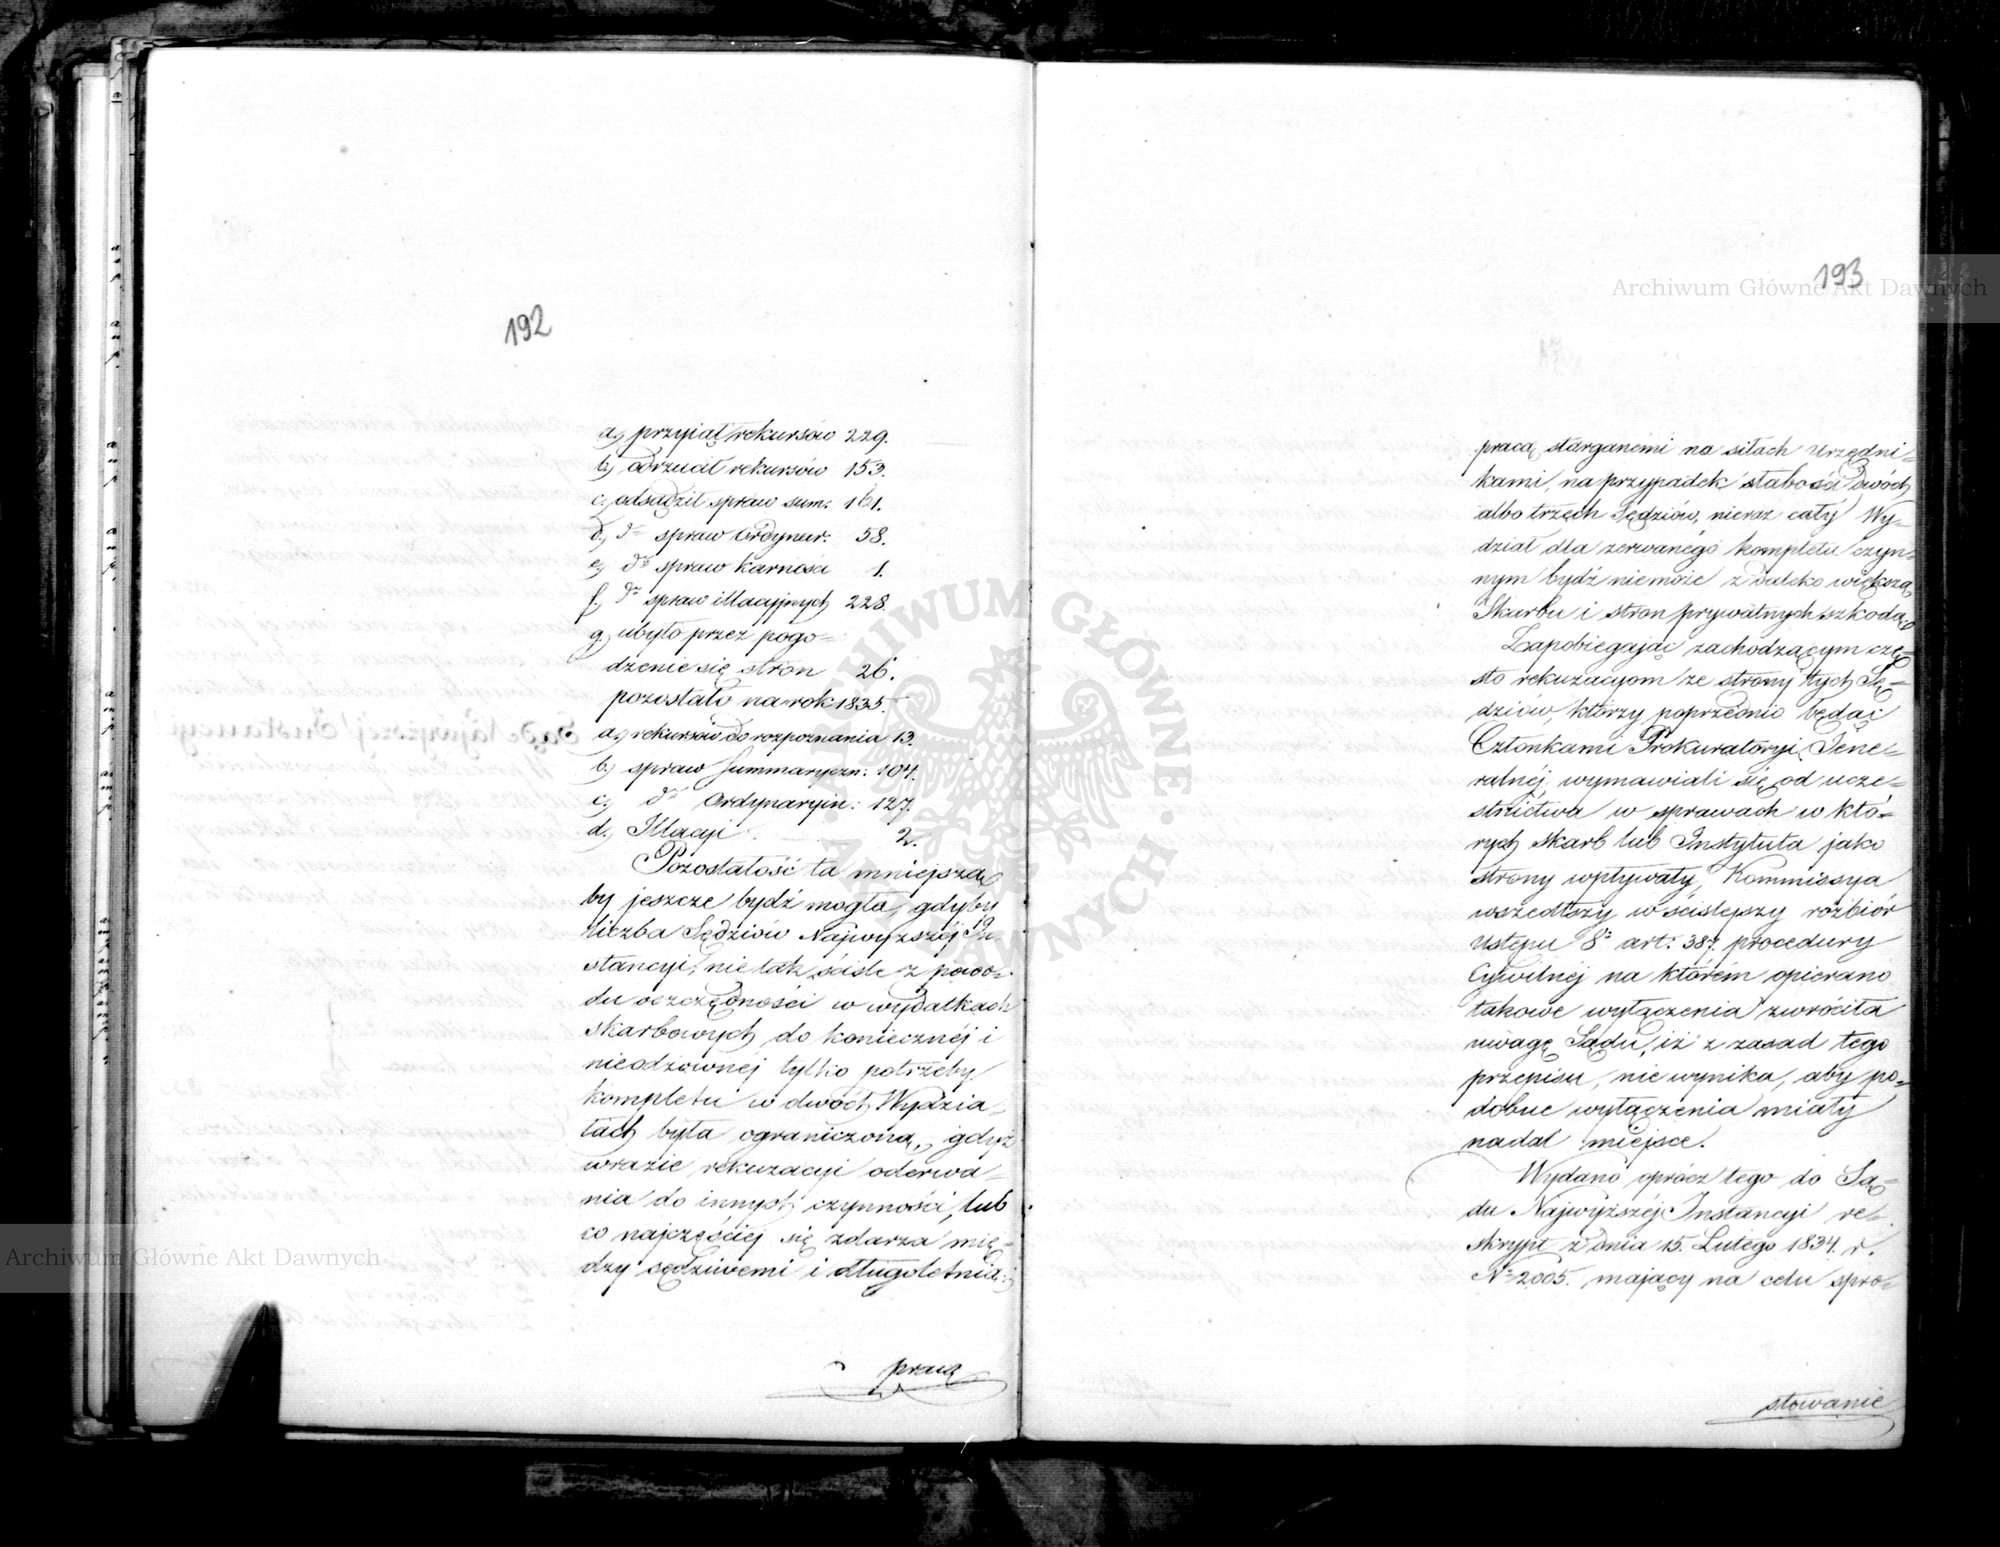 192
a.) przyiął rekursów 229.
b.) odrzucił rekursów 153.
c.) odsądził spraw sum: 161.
d.) do spraw Ordynar: 58.
e.) do spraw Karności 1.
f.) do spraw illacyjnych 228.
g.) ubyło przez pogo-
dzenie się stron 26.
pozostało na rok 1835.
a.) rekursów do rozpoznania 13.
b.) spraw Summaryczn: 104.
c.) do Ordynaryin: 127.
d.) Illacyi 2.
Pozostałość ta mniejszą
by jeszcze bydź mogła, gdyby
liczba Sędziów Najwyższéj In-
stancyi, nie tak ściśle z powo-
du oszczędności w wydatkach
skarbowych do koniecznéj i
nieodzownéj tylko potrzeby
kompletu w dwóch Wydzia-
łach była ograniczoną, gdyż
w razie rekuzacyi oderwa-
nia do innych czynności, lub
co najczęściej się zdarza mię-
dzy sędziwemi i długoletnią
pracą
193
pracą starganémi na siłach Urzędni-
kami, na przypadek słabości dwóch
albo trzech Sędziów, nieraz cały Wy-
dział dla zerwanégo kompletu czyn-
nym bydź niemoże z daleko większą
Skarbu i stron prywatnych szkodą.
Zapobiegając zachodzącym czę-
sto rekuzacyom ze strony tych Sę-
dziów, którzy poprzednio będąc
Członkami Prokuratoryi Jene-
ralnéj, wymawiali się od ucze-
stnictwa w sprawach w któ-
rych skarb lub Instytuta jako
strony wpływały, Kommissya
wszedłszy w ściślejszy rozbiór
Ustępu 8o art: 387. procedury
Cywilnéj na którém opierano
takowe wyłączenia zwróciła
uwagę Sądu, iż z zasad tego
przepisu, nie wynika, aby po-
dobne wyłączenia miały
nadal miejsce.
Wydano oprócz tego do Są-
du Najwyższéj Instancyi re-
skrypt z dnia 15. Lutego 1834. r.
No 2005. mający na celu spro-
stowanie
Archiwum Główne Akt Dawnych
Archiwum Główne Akt Dawnych
ARCHIWUM GŁÓWNE AKT DAWNYCH